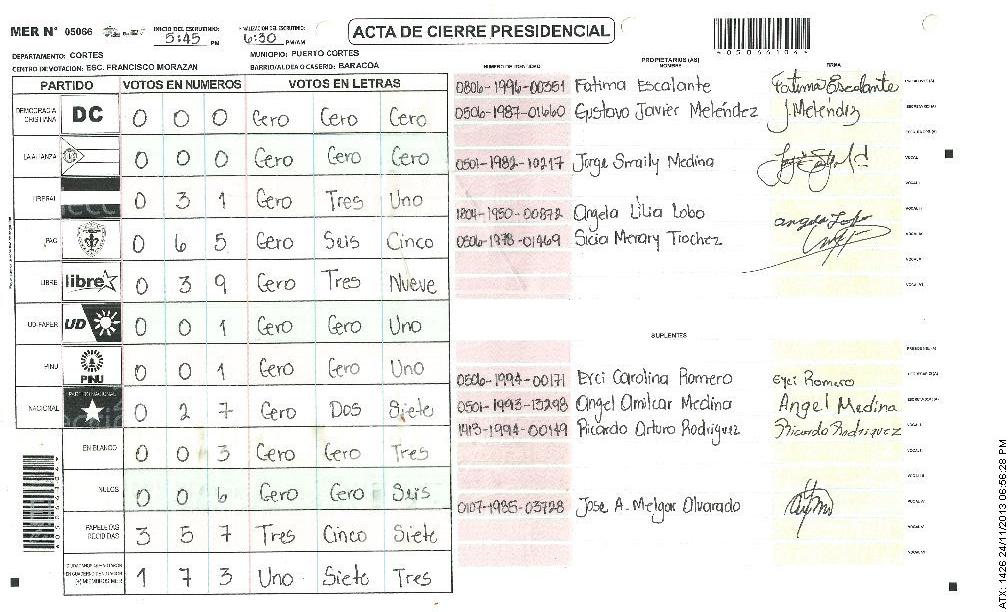 MER N° 05066 INICIO DEL ESCRUTINIO: 5:45 PM FINALIZACION DEL ESCRUTINIO: 6:30 PM/AM
ACTA DE CIERRE PRESIDENCIAL
DEPARTAMENTO: CORTES MUNICIPIO: PUERTO CORTES
CENTRO DE VOTACION: ESC. FRANCISCO MORAZAN BARRIO/ALDEA O CASERIO: BARACOA
PARTIDO VOTOS EN NUMEROS VOTOS EN LETRAS
DEMOCRACIA CRISTIANA DC 0 0 0 Cero Cero Cero
LA ALIANZA 0 0 0 Cero Cero Cero
LIBERAL 0 3 1 Cero Tres Uno
PAC 0 6 5 Cero Seis Cinco
LIBRE libre 0 3 9 Cero Tres Nueve
UD-FAPER UD 0 0 1 Cero Cero Uno
PINU PINU 0 0 1 Cero Cero Uno
NACIONAL PARTIDO NACIONAL 0 2 7 Cero Dos Siete
EN BLANCO 0 0 3 Cero Cero Tres
NULOS 0 0 6 Cero Cero Seis
PAPELETAS RECIBIDAS 3 5 7 Tres Cinco Siete
(+) MIEMBROS MER 1 7 3 Uno Siete Tres
PROPIETARIOS (AS)
NUMERO DE IDENTIDAD NOMBRE FIRMA
0806-1996-00351 Fatima Escalante Fatima Escalante
0506-1987-01660 Gustavo Javier Meléndez J. Meléndez
0501-1982-10217 Jorge Smaily Medina
1804-1950-00872 Angela Lilia Lobo angela Lobo
0506-1978-01469 Sicia Merary Trochez
SUPLENTES
0506-1994-00171 Eyci Carolina Romero Eyci Romero
0501-1993-13298 Angel Amilcar Medina Angel Medina
1413-1994-00149 Ricardo Arturo Rodriguez Ricardo Rodriguez
0107-1985-03728 Jose A. Melgar Alvarado
ATX: 1426 24/11/2013 06:56:28 PM